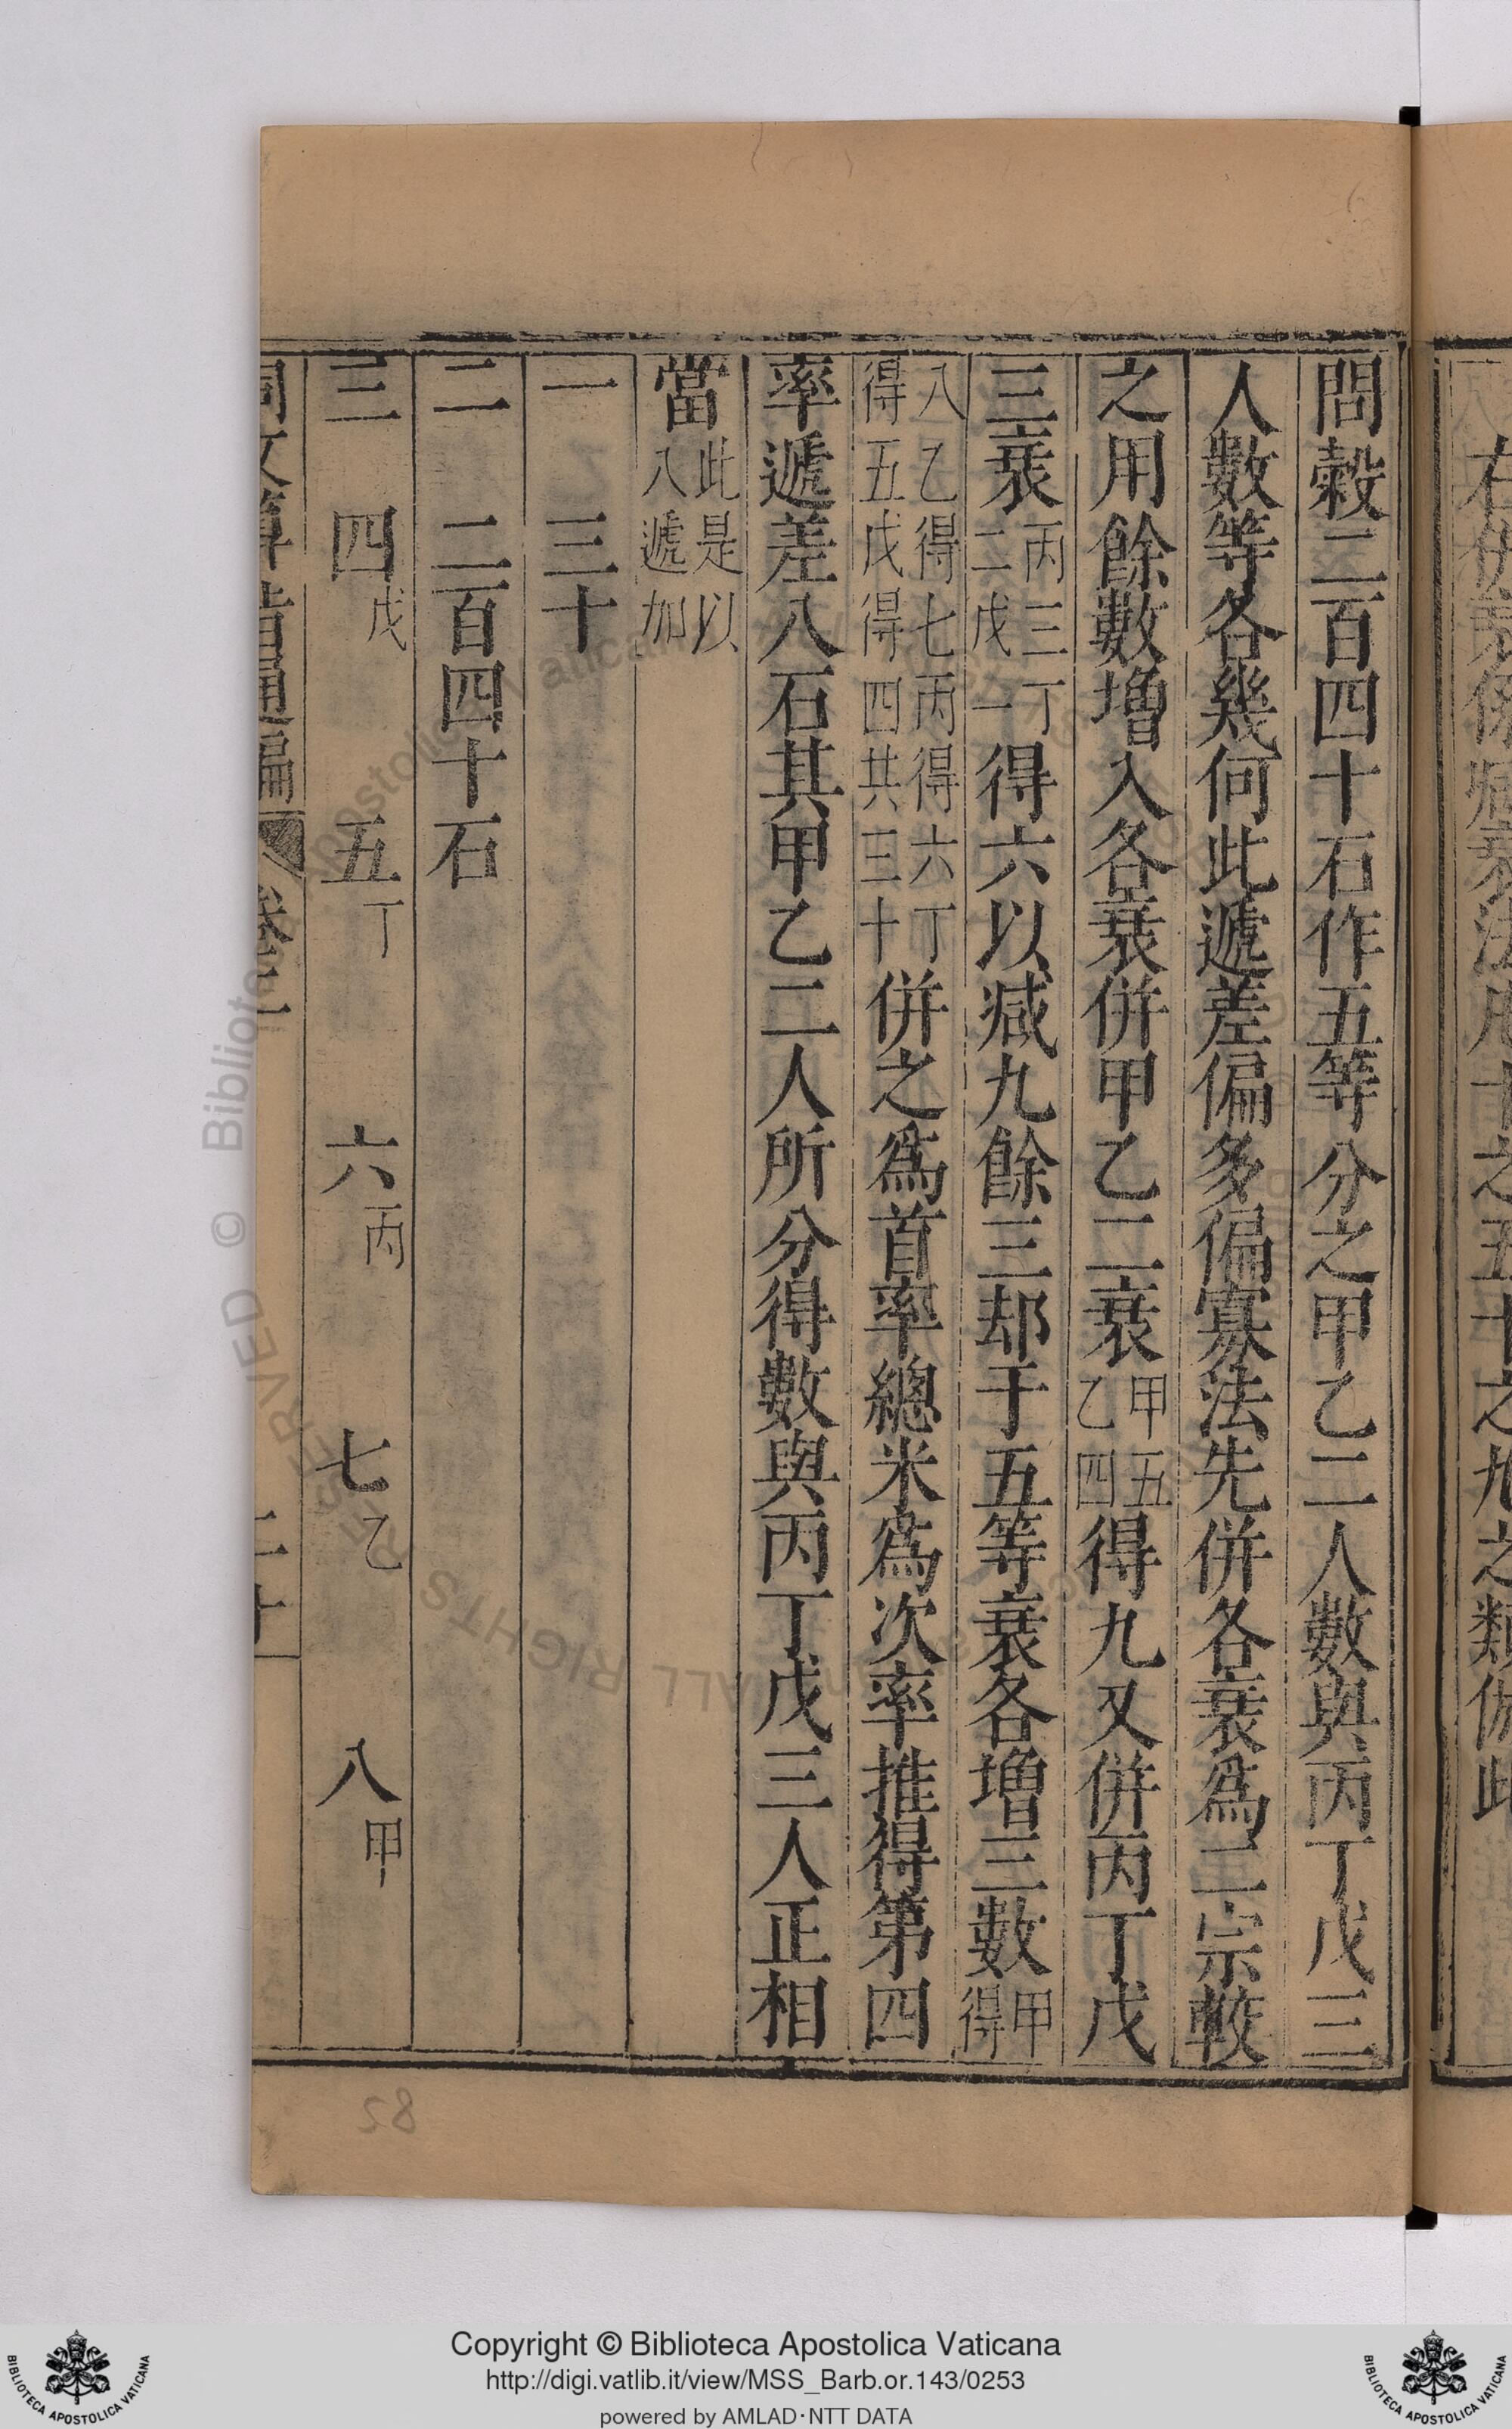 問穀二百四十石作五等分之甲乙二人數與丙丁戊三
人數等各幾何此遞差偏多偏寡法先併各衰爲二宗較
之用餘數增入各衰併甲乙二衰甲五乙四得九又併丙丁戊
三衰丙三丁二戊一得六以減九餘三却于五等衰各增三數甲得
八乙得七丙得六丁得五戊得四共三十併之爲首率總米爲次率推得第四
率遞差八石其甲乙二人所分得數與丙丁戊三人正相
當此是以八遞加
一 三十
二 二百四十石
三 四戊 五丁 六丙 七乙 八甲
同文算指通編 卷二 二十
82
Copyright © Biblioteca Apostolica Vaticana
http://digi.vatlib.it/view/MSS_Barb.or.143/0253
powered by AMLAD·NTT DATA
BIBLIOTECA APOSTOLICA VATICANA
BIBLIOTECA APOSTOLICA VATICANA